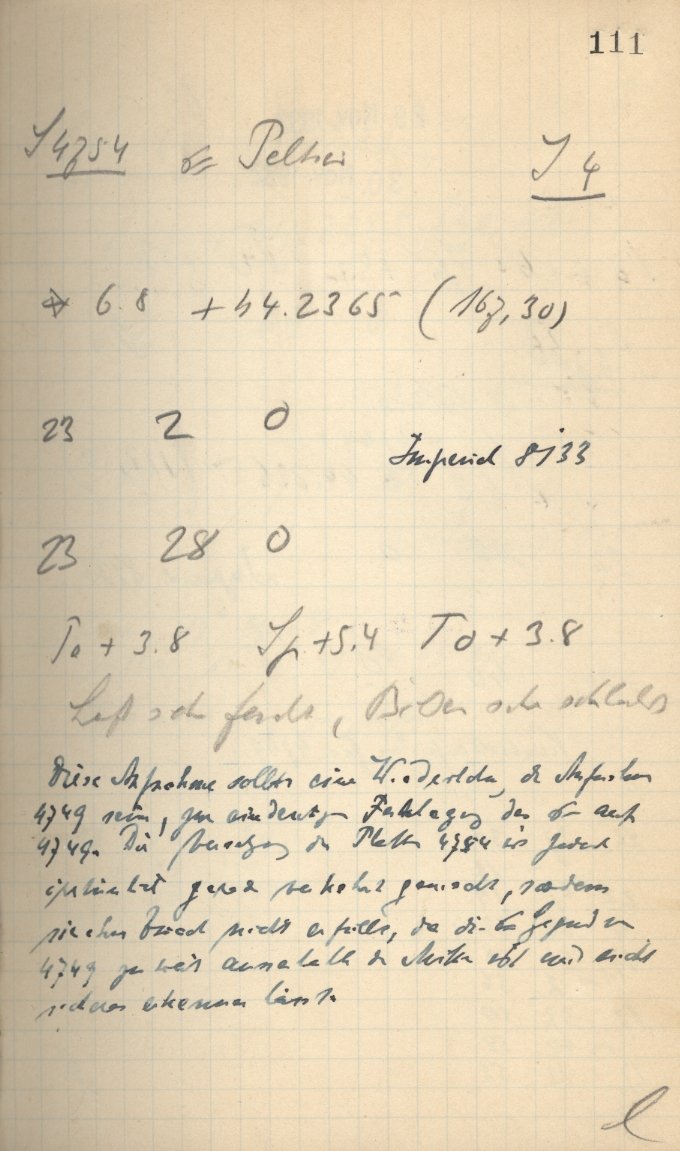 111
S 4754 Peltier S 4
6.8 +44.2365 (167,30)
23 2 0
Imperial 8133
23 28 0
To + 3.8 Sp +5.4 To + 3.8
Luft sehr feucht, Bilder sehr schlecht
Diese Aufnahme sollte eine Wiederholung der Aufnahme
4749 sein, zur eindeutigen Festlegung des auf
4749. Die der Platte 4754 ist jedoch
gerade verkehrt gemacht, sodass
sie ihren Zweck nicht erfüllt, da die Gegend von
4749 zu weit ausserhalb der Mitte ist und nicht
sicher erkennen lässt.